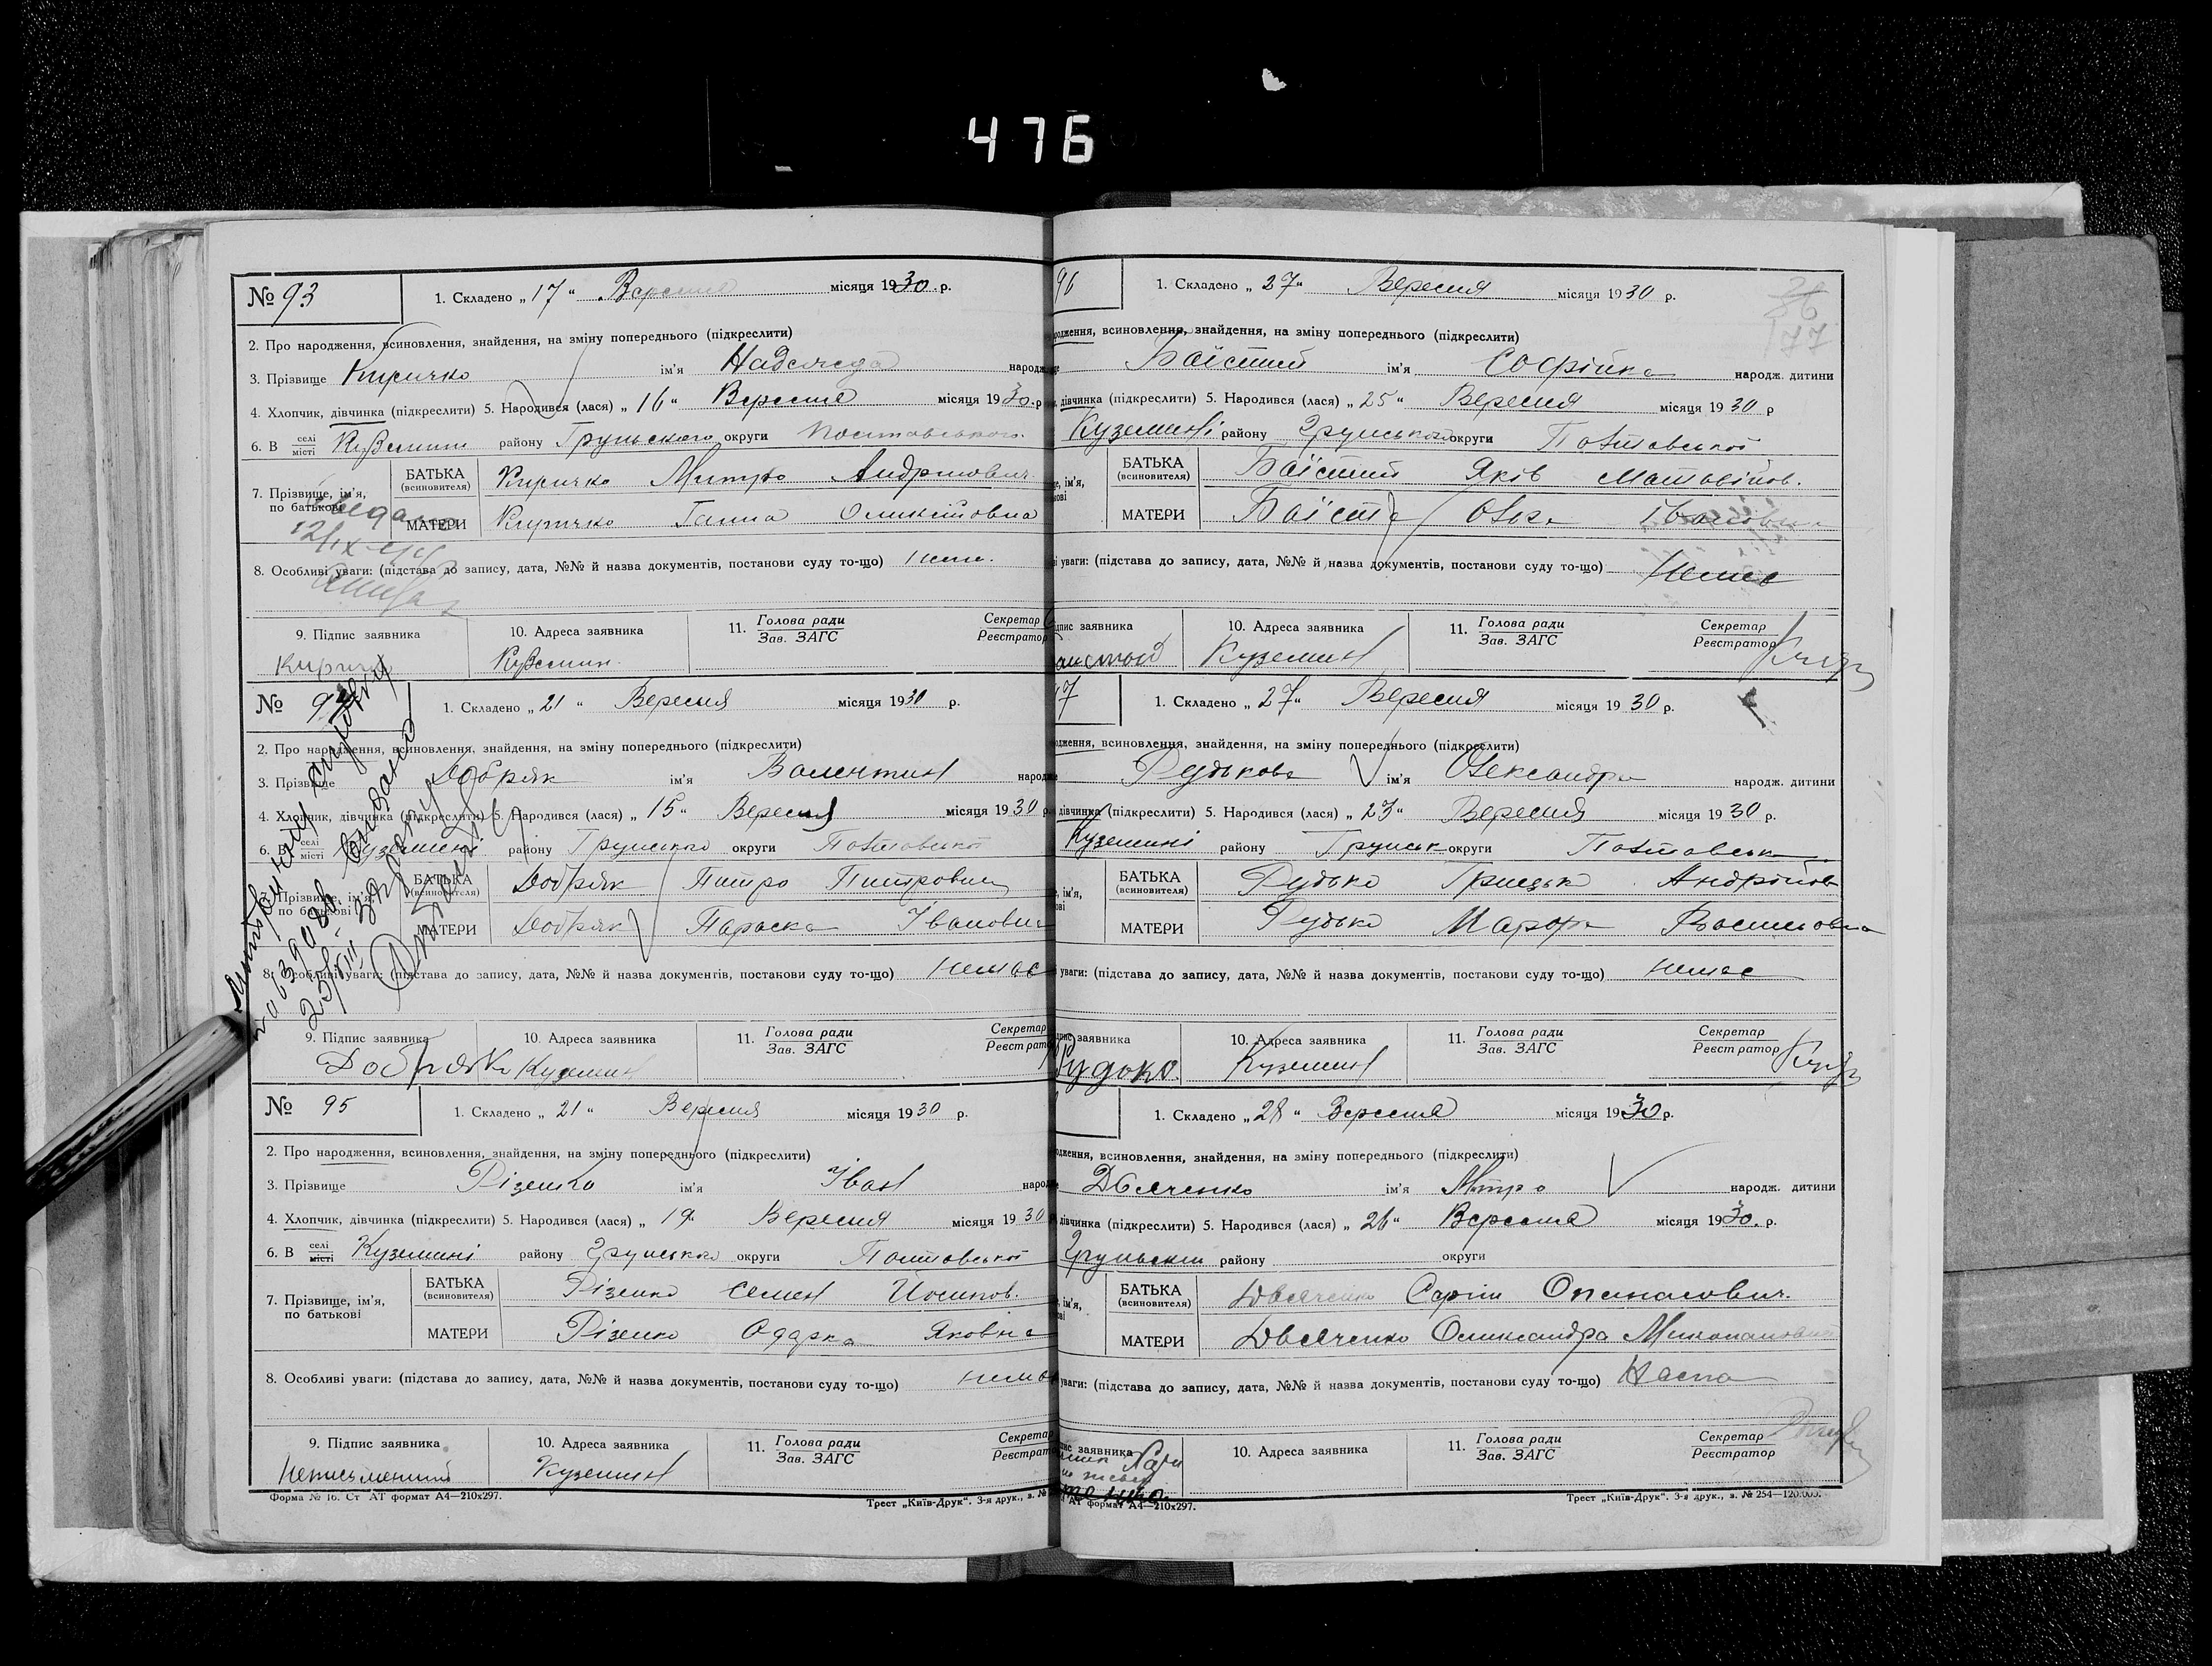 476
№ 93
1. Складено „17" Вересня місяця 1930 р.
2. Про народження, всиновлення, знайдення, на зміну попереднього (підкреслити)
3. Прізвище Киричко ім'я Надежда народж
4. Хлопчик, дівчинка (підкреслити) 5. Народився (лася) „16" Вересня місяця 1930 р
6. В селі місті Куземин району Груньского округи
7. Прізвище, ім'я, по батькові
БАТЬКА (всиновителя) Киричко Митро Андриович
МАТЕРИ Киричко Ганна
8. Особливі уваги: (підстава до запису, дата, №№ й назва документів, постанови суду то-що)
9. Підпис заявника 10. Адреса заявника 11. Голова ради Зав. ЗАГС Секретар Реєстратор
Куземин
№ 94
1. Складено „21" Вересня місяця 1930 р.
2. Про народження, всиновлення, знайдення, на зміну попереднього (підкреслити)
3. Прізвище Добряк ім'я Валентин народж
4. Хлопчик, дівчинка (підкреслити) 5. Народився (лася) „15" Вересня місяця 1930 р
6. В селі місті Куземині району Грунського округи Полтавської
Прізвище, ім'я, по батькові
БАТЬКА (всиновителя) Добряк Питро Питрович
МАТЕРИ Добряк Параска Івановна
8. Особливі уваги: (підстава до запису, дата, №№ й назва документів, постанови суду то-що) немає
9. Підпис заявника 10. Адреса заявника 11. Голова ради Зав. ЗАГС Секретар Реєстрато
Добряк Куземин
№ 95
1. Складено „21" Вересня місяця 1930 р.
2. Про народження, всиновлення, знайдення, на зміну попереднього (підкреслити)
3. Прізвище Різенко ім'я Іван народж
4. Хлопчик, дівчинка (підкреслити) 5. Народився (лася) „19" Вересня місяця 1930
6. В селі місті Куземині району Грунського округи Полтавської
7. Прізвище, ім'я, по батькові
БАТЬКА (всиновителя) Різенко Семен Йосипов.
МАТЕРИ Різенко Одарка Яковна
8. Особливі уваги: (підстава до запису, дата, №№ й назва документів, постанови суду то-що)
9. Підпис заявника 10. Адреса заявника 11. Голова ради Зав. ЗАГС Секретар Реєстрат
Неписьменний Куземин
Форма № 16. Ст АТ формат А4—210х297. Трест „Київ-Друк". 3-я друк., з. №
96
1. Складено „27" Вересня місяця 1930 р.
77
одження, всиновлення, знайдення, на зміну попереднього (підкреслити)
Баїстий ім'я Софійка народж. дитини
дівчинка (підкреслити) 5. Народився (лася) „25" Вересня місяця 1930 р
Куземині району Грунського округи Полтавської
БАТЬКА (всиновителя) Баїстий Яків Матвійов.
МАТЕРИ Баїста Олька Івановна
уваги: (підстава до запису, дата, №№ й назва документів, постанови суду то-що) Немає
дпис заявника 10. Адреса заявника 11. Голова ради Зав. ЗАГС Секретар Реєстратор
Куземин
97
1. Складено „27" Вересня місяця 1930 р.
одження, всиновлення, знайдення, на зміну попереднього (підкреслити)
Рудькова ім'я Олександра народж. дитини
дівчинка (підкреслити) 5. Народився (лася) „23" Вересня місяця 1930 р.
Куземині району Грунськ округи Полтавськ
БАТЬКА (всиновителя) Рудько Грицько Андрійов
МАТЕРИ Рудько Марфа Васильовна
уваги: (підстава до запису, дата, №№ й назва документів, постанови суду то-що) немає
дпис заявника 10. Адреса заявника 11. Голова ради Зав. ЗАГС Секретар Реєстратор
Рудько. Куземин
1. Складено „28" Вересня місяця 1930 р.
одження, всиновлення, знайдення, на зміну попереднього (підкреслити)
Дяченко ім'я Митро народж. дитини
дівчинка (підкреслити) 5. Народився (лася) „26" Вересня місяця 1930. р.
району округи
БАТЬКА (всиновителя) Сергій Опанасович.
МАТЕРИ Олександра
уваги: (підстава до запису, дата, №№ й назва документів, постанови суду то-що)
заявника 10. Адреса заявника 11. Голова ради Зав. ЗАГС Секретар Реєстратор
АТ формат А4—210х297. Трест „Київ-Друк". 3-я друк., з. № 254—120.000.